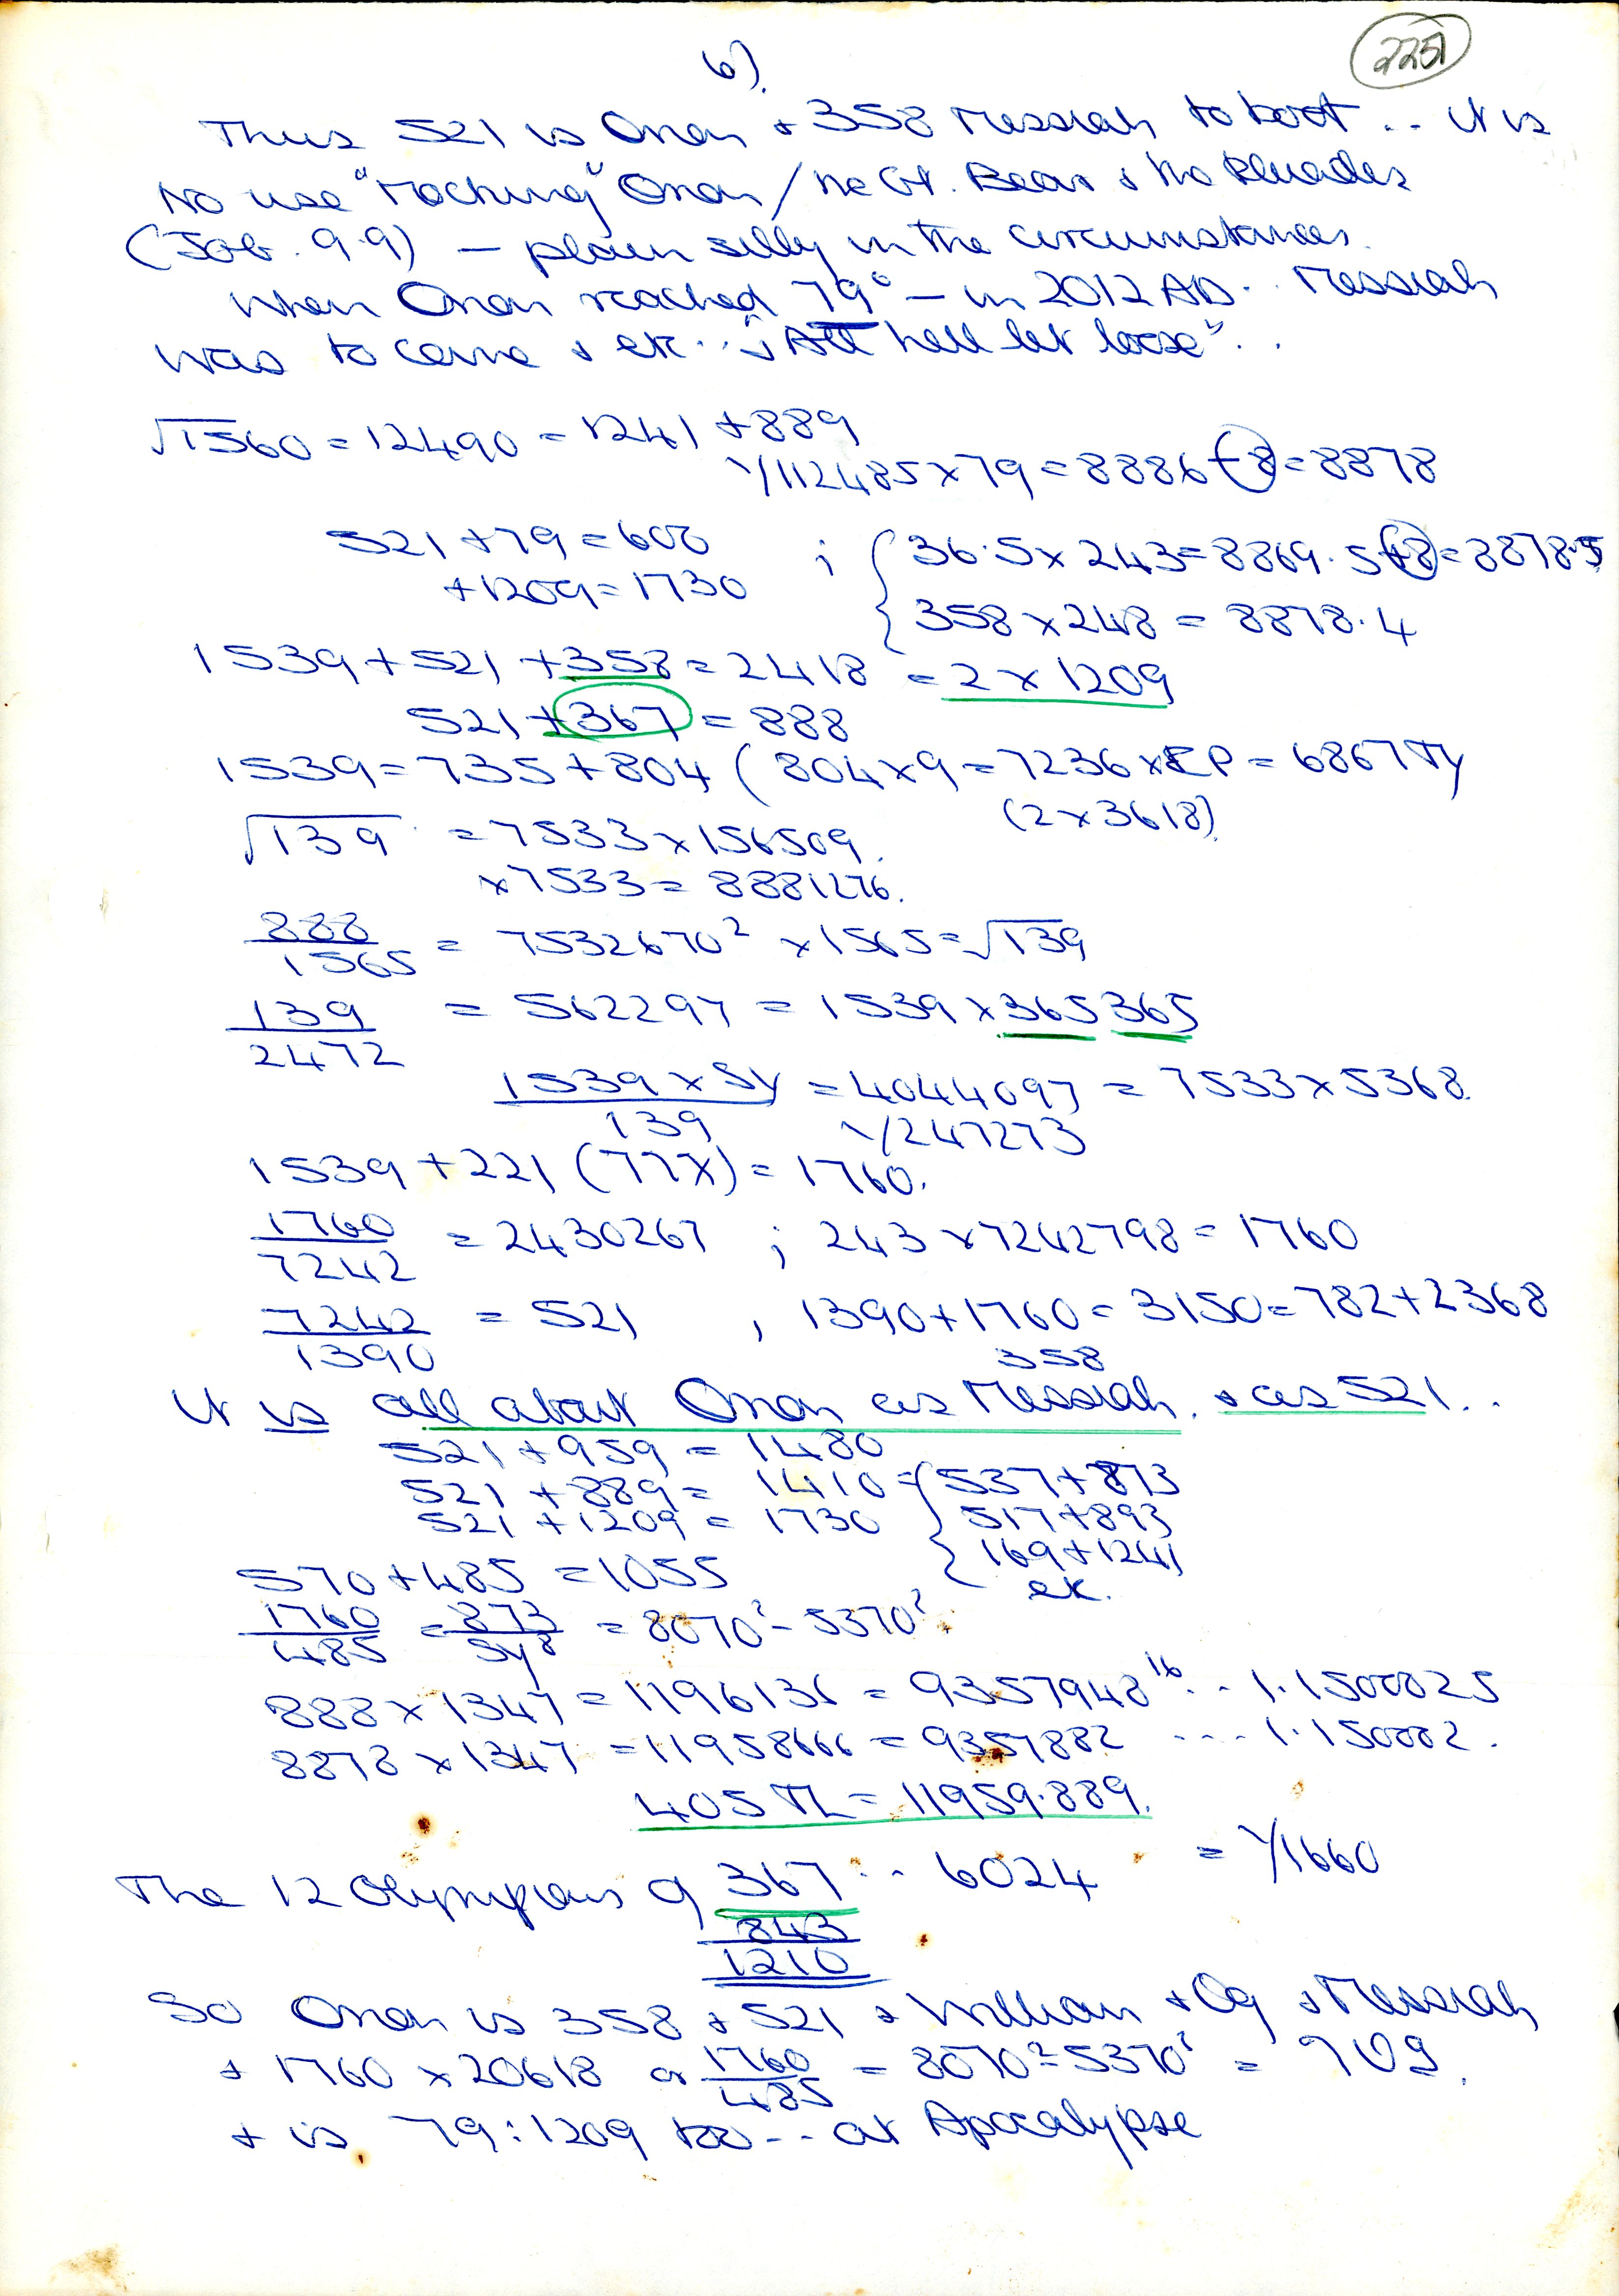 6).
2251
Thus 521 is Orion + 358 Messiah to boot .. it is
no use "mocking" Orion / the Gt. Bear + the Pleiades
(Job. 9.9) — plain silly in the circumstances.
When Orion reached 79° — in 2012 AD.. Messiah
was to come + etc.. + "All hell let loose"..
√1560 = 12490 = 1241 + 889
1/112485 × 79 = 8886 - 8 = 8878
521 + 79 = 600 ; { 36.5 × 243 = 8869.5 + 8 = 8878.5
+ 1209 = 1730 358 × 248 = 8878.4
1539 + 521 + 358 = 2418 = 2 × 1209
521 + 367 = 888
1539 = 735 + 804 ( 804 × 9 = 7236 × EP = 6867 Ty
(2 × 3618).
√139 = 7533 × 156509.
× 7533 = 8881276.
888/1565 = 7532670² × 1565 = √139
139/2472 = 562297 = 1539 × 365 365
1539 × Sy/139 = 4044097 = 7533 × 5368.
1/247273
1539 + 221 (77X) = 1760.
1760/7242 = 2430267 ; 243 × 7242798 = 1760
7242/1390 = 521 , 1390 + 1760 = 3150 = 782 + 2368
358
It is all about Orion as Messiah. + as 521..
521 + 959 = 1480
521 + 889 = 1410 = { 537 + 873
521 + 1209 = 1730 517 + 893
169 + 1241
etc.
570 + 485 = 1055
1760/485 = 873/Sy⁸ = 8070² - 5370².
888 × 1347 = 1196136 = 9357948¹⁶ .. 1.1500025
8878 × 1347 = 11958666 = 9357882 ... 1.150002.
405 TL = 11959.889.
The 12 Olympians of 367 .. 6024 = 1/1660
843
1210
So Orion is 358 + 521 + William + Og + Messiah
+ 1760 × 20618 or 1760/485 = 8070² - 5370² = 709.
+ is 79 : 1209 too .. at Apocalypse